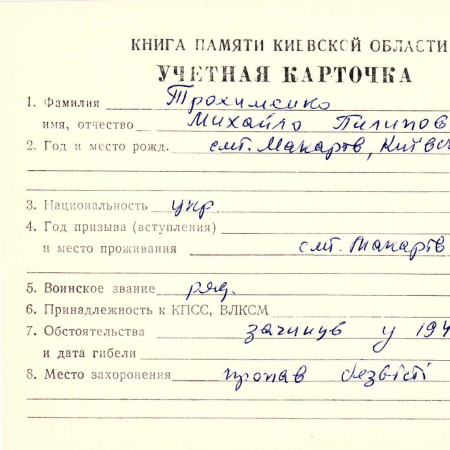 КНИГА ПАМЯТИ КИЕВСКОЙ ОБЛАСТИ
УЧЕТНАЯ КАРТОЧКА
1. Фамилия Трохименко
имя, отчество Михайло Пилипов
2. Год и место рожд. смт. Макарів, Київс
3. Национальность укр.
4. Год призыва (вступления)
и место проживания смт. Макарів
5. Воинское звание ряд.
6. Принадлежность к КПСС, ВЛКСМ
7. Обстоятельства загинув у 194
и дата гибели
8. Место захоронения пропав безвісті